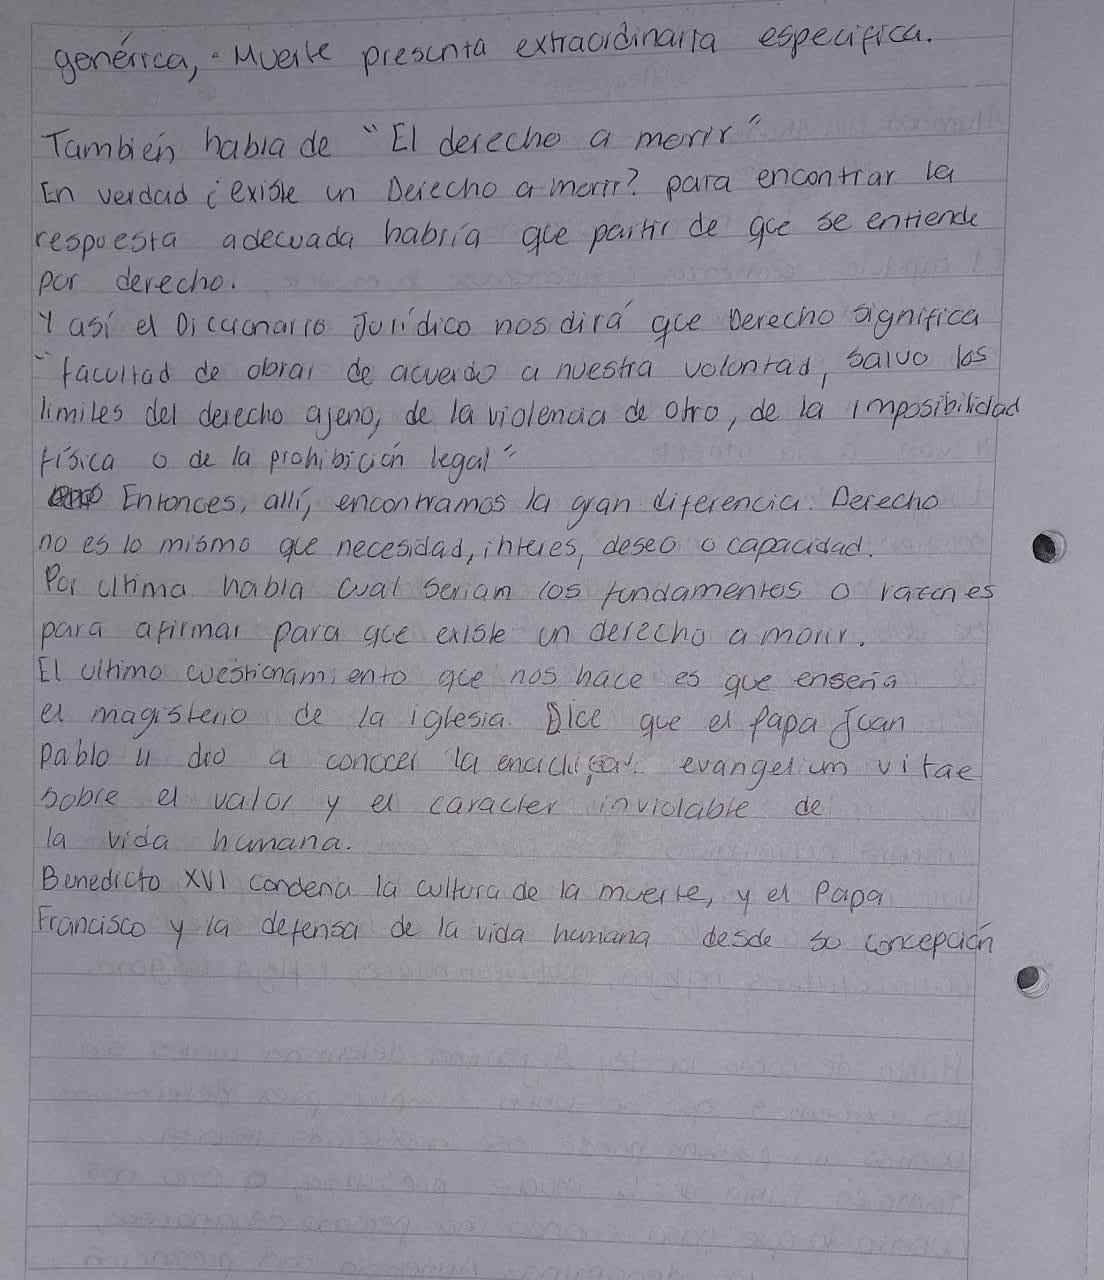 genérica, - Muerte presunta extraordinaria especifica.
También habla de "El derecho a morir"
En verdad ¿existe un Derecho a morir? para encontrar la
respuesta adecuada habría que partir de que se entiende
por derecho.
Y así el Diccionario Jurídico nos dirá que Derecho significa
"facultad de obrar de acuerdo a nuestra voluntad, salvo los
limites del derecho ajeno, de la violencia de otro, de la imposibilidad
física o de la prohibición legal"
Entonces, allí, encontramos la gran diferencia. Derecho
no es lo mismo que necesidad, interes, deseo o capacidad.
Por ultima habla cual seriam los fundamentos o razones
para afirmar para que existe un derecho a morir.
El ultimo cuestionamiento que nos hace es que enseña
el magisterio de la iglesia. Dice que el Papa Juan
Pablo II dio a conocer la evangelium vitae
sobre el valor y el caracter inviolable de
la vida humana.
Benedicto XVI condena la cultura de la muerte, y el Papa
Francisco y la defensa de la vida humana desde su concepción